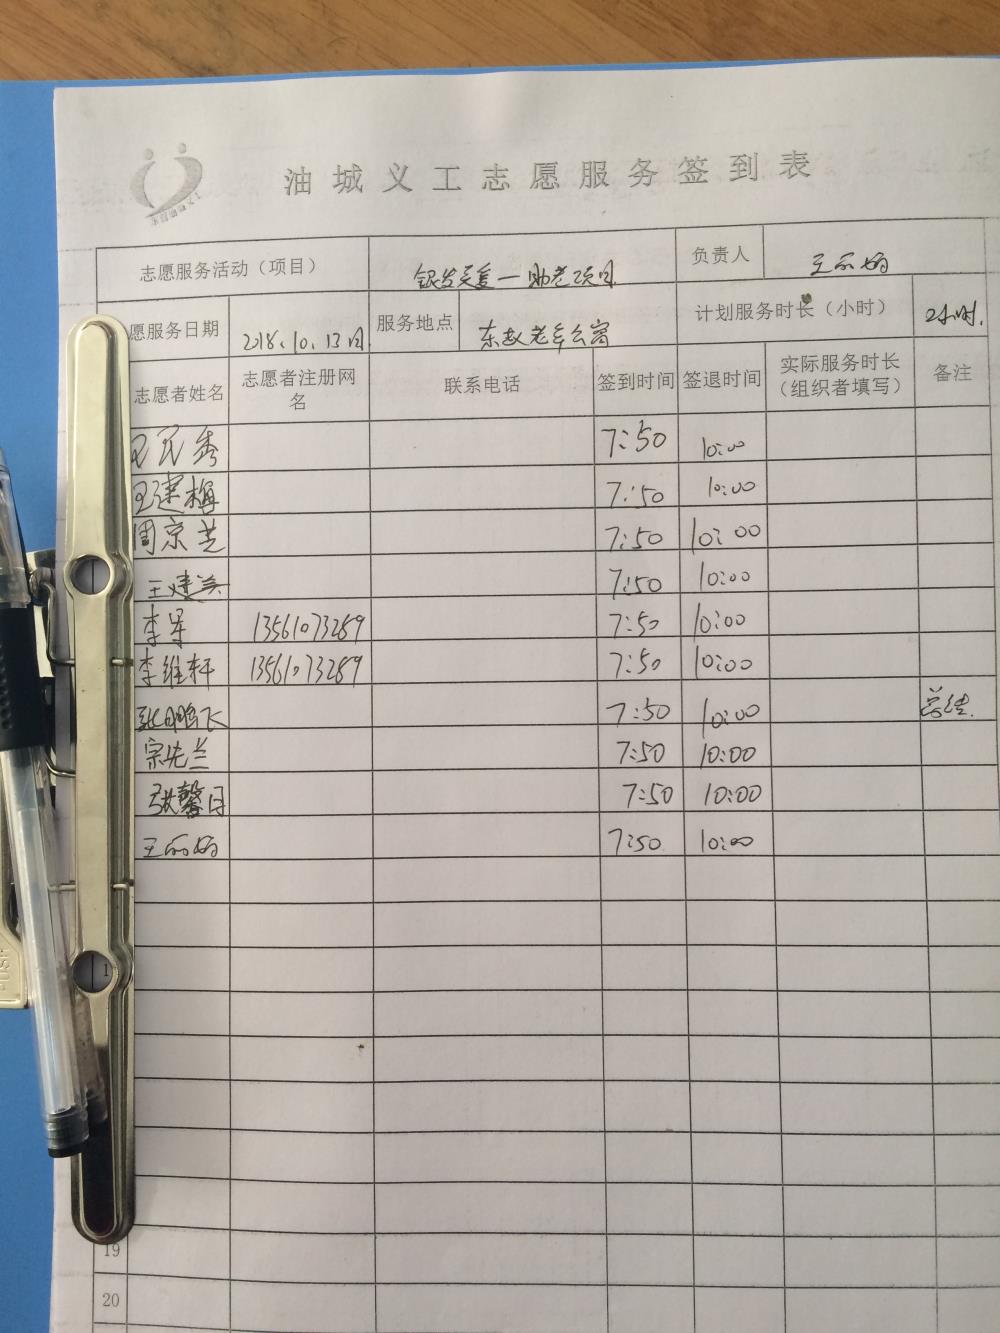 油城义工志愿服务签到表
志愿服务活动（项目） 银发关爱一助老项目 负责人 王丽娟
愿服务日期 2018.10.13日 服务地点 东赵老年公寓 计划服务时长（小时） 2小时.
志愿者姓名 志愿者注册网名 联系电话 签到时间 签退时间 实际服务时长（组织者填写） 备注
王民秀 7:50 10:00
王建梅 7:50 10:00
周京芝 7:50 10:00
王建英 7:50 10:00
李军 13561073289 7:50 10:00
李维轩 13561073289 7:50 10:00
张鹏飞 7:50 10:00 总结.
宗先兰 7:50 10:00
张馨月 7:50 10:00
王丽娟 7:50 10:00
1
19
20